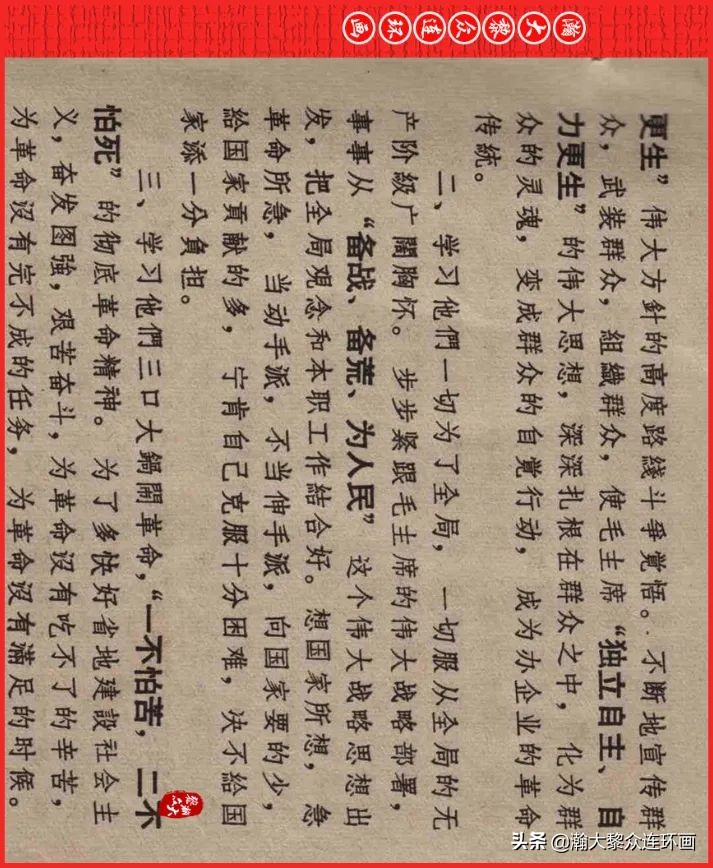 瀚大黎众连环画
更生”伟大方針的高度路綫斗爭覚悟。不断地宣传群
众，武装群众，組織群众，使毛主席“独立自主、自
力更生”的伟大思想，深深扎根在群众之中，化为群
众的灵魂，变成群众的自覚行动，成为办企业的革命
传統。
二、学习他們一切为了全局，一切服从全局的无
产阶級广闊胸怀。步步紧跟毛主席的伟大战略部署，
事事从“备战、备荒、为人民”这个伟大战略思想出
发，把全局观念和本职工作結合好。想国家所想，急
革命所急，当动手派，不当伸手派，向国家要的少，
給国家貢献的多，宁肯自己克服十分困难，决不給国
家添一分負担。
三、学习他們三口大鍋閙革命，“一不怕苦，二不
怕死”的彻底革命精神。为了多快好省地建設社会主
义，奋发图強，艰苦奋斗，为革命沒有吃不了的辛苦，
为革命沒有完不成的任务，为革命沒有滿足的时候。
瀚大黎众
头条 @瀚大黎众连环画